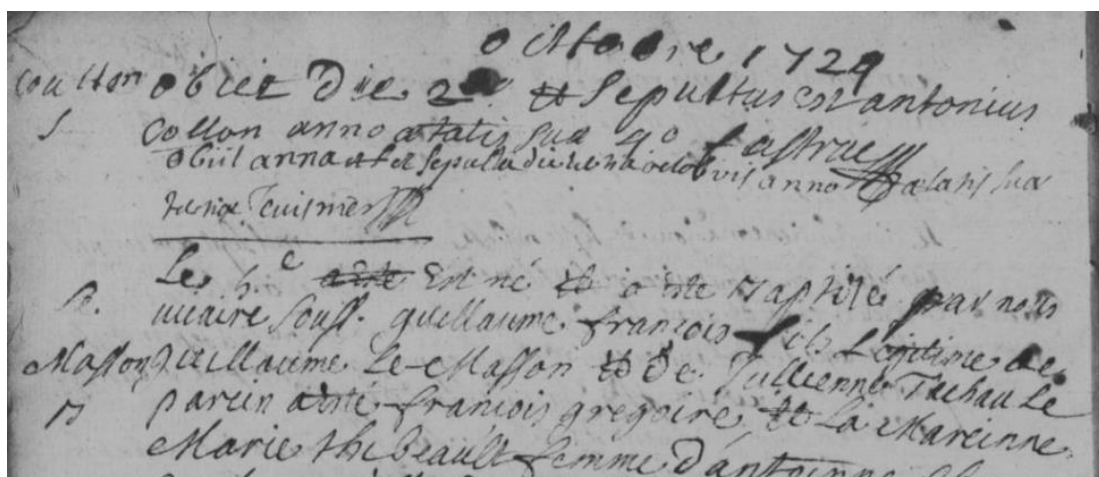 octobre 1729
Coulton obiit Die 2a et Sepultus est antonius
S collon anno ætatis suæ 40 Lastrue
obiit anna et sepulta die nona octobris anno ætatis sua
Le h.e est né et a este Baptisé par nous
vicaire Souss. guillaume francois fils Legitime de
Le Masson guillaume Le Masson et De Jullienne Tachau Le
B parein a esté francois gregoire et La Mareinne
Marie thibeault femme d'antoinne